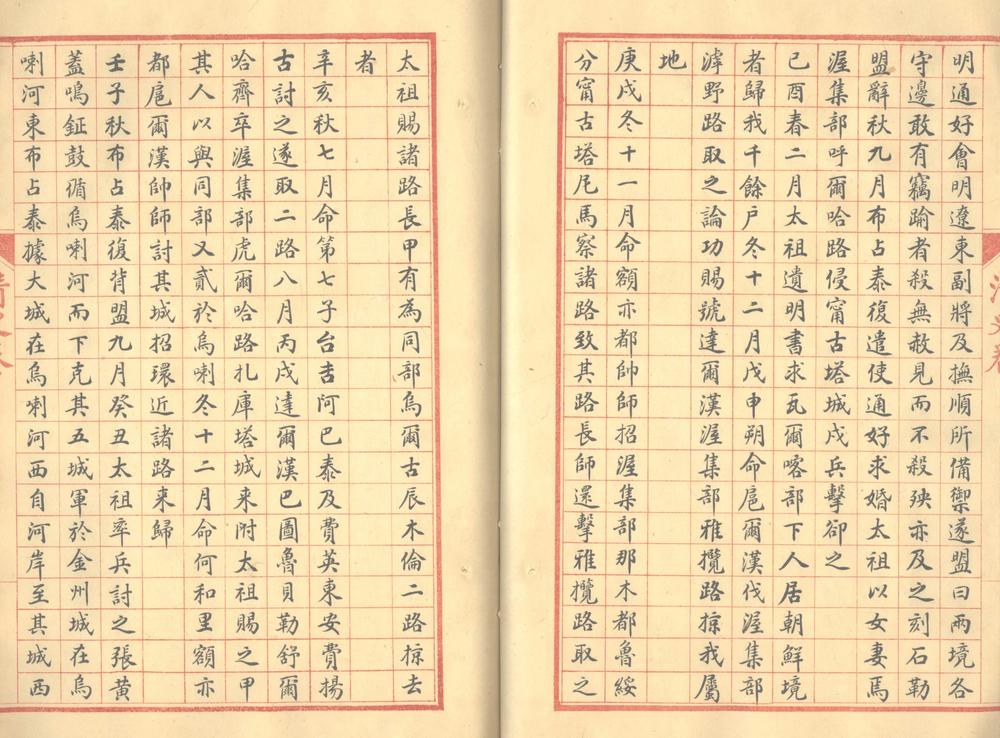 明通好會明遼東副將及撫順所備禦遂盟曰兩境各
守邊敢有竊踰者殺無赦見而不殺殃亦及之刻石勒
盟辭秋九月布占泰復遣使通好求婚太祖以女妻焉
渥集部呼爾哈路侵甯古塔城戍兵擊卻之
己酉春二月太祖遺明書求瓦爾喀部下人居朝鮮境
者歸我千餘户冬十二月戊申朔命扈爾漢伐渥集部
滹野路取之論功賜號達爾漢渥集部雅攬路掠我屬
地
庚戌冬十一月命額亦都帥師招渥集部那木都魯綏
分甯古塔尼馬察諸路致其路長師還擊雅攬路取之
太祖賜諸路長甲有為同部烏爾古辰木倫二路掠去
者
辛亥秋七月命第七子台吉阿巴泰及費英東安費揚
古討之遂取二路八月丙戌達爾漢巴圖魯貝勒舒爾
哈齊卒渥集部虎爾哈路扎庫塔城來附太祖賜之甲
其人以與同部又貳於烏喇冬十二月命何和里額亦
都扈爾漢帥師討其城招環近諸路來歸
壬子秋布占泰復背盟九月癸丑太祖率兵討之張黃
蓋鳴鉦鼓循烏喇河而下克其五城軍於金州城在烏
喇河東布占泰據大城在烏喇河西自河岸至其城西